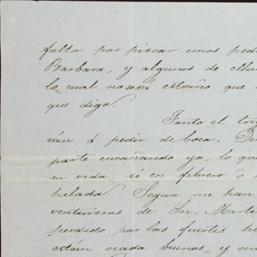 falta por picar unos ped
Barbara, y algunos de ella
lo cual no será extraño que
que digo.
Tanto el trig
ván á pedir de boca. De
parte encañando ya, lo qu
su vida, si en febrero ó
helada. Segun me han
ventureros de Sn. Marti
perdido por las fuertes he
están nada buenos, y m